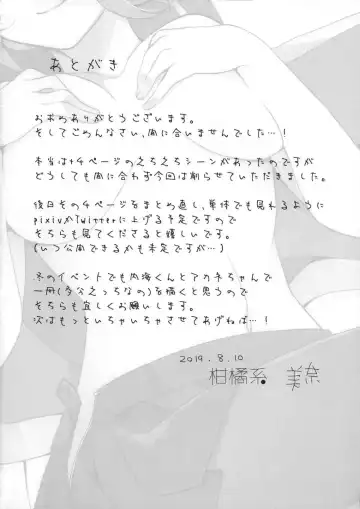 あとがき
お求めありがとうございます。
そしてごめんなさい、間に合いませんでした…!
本当は+4ページのえちえちシーンがあったのですが
どうしても間に合わず今回は削らせていただきました。
後日その4ページをまとめ直し、単体でも見れるように
pixivかTwitterに上げる予定ですので
そちらも見てくださると嬉しいです。
(いつ公開できるかも未定ですが…)
冬のイベントでも内海くんとアカネちゃんで
一冊(多分えっちなの)を描くと思うので
そちらも宜しくお願いします。
次はもっといちゃいちゃさせてあげねば…!
2019.8.10
柑橘系。 美奈